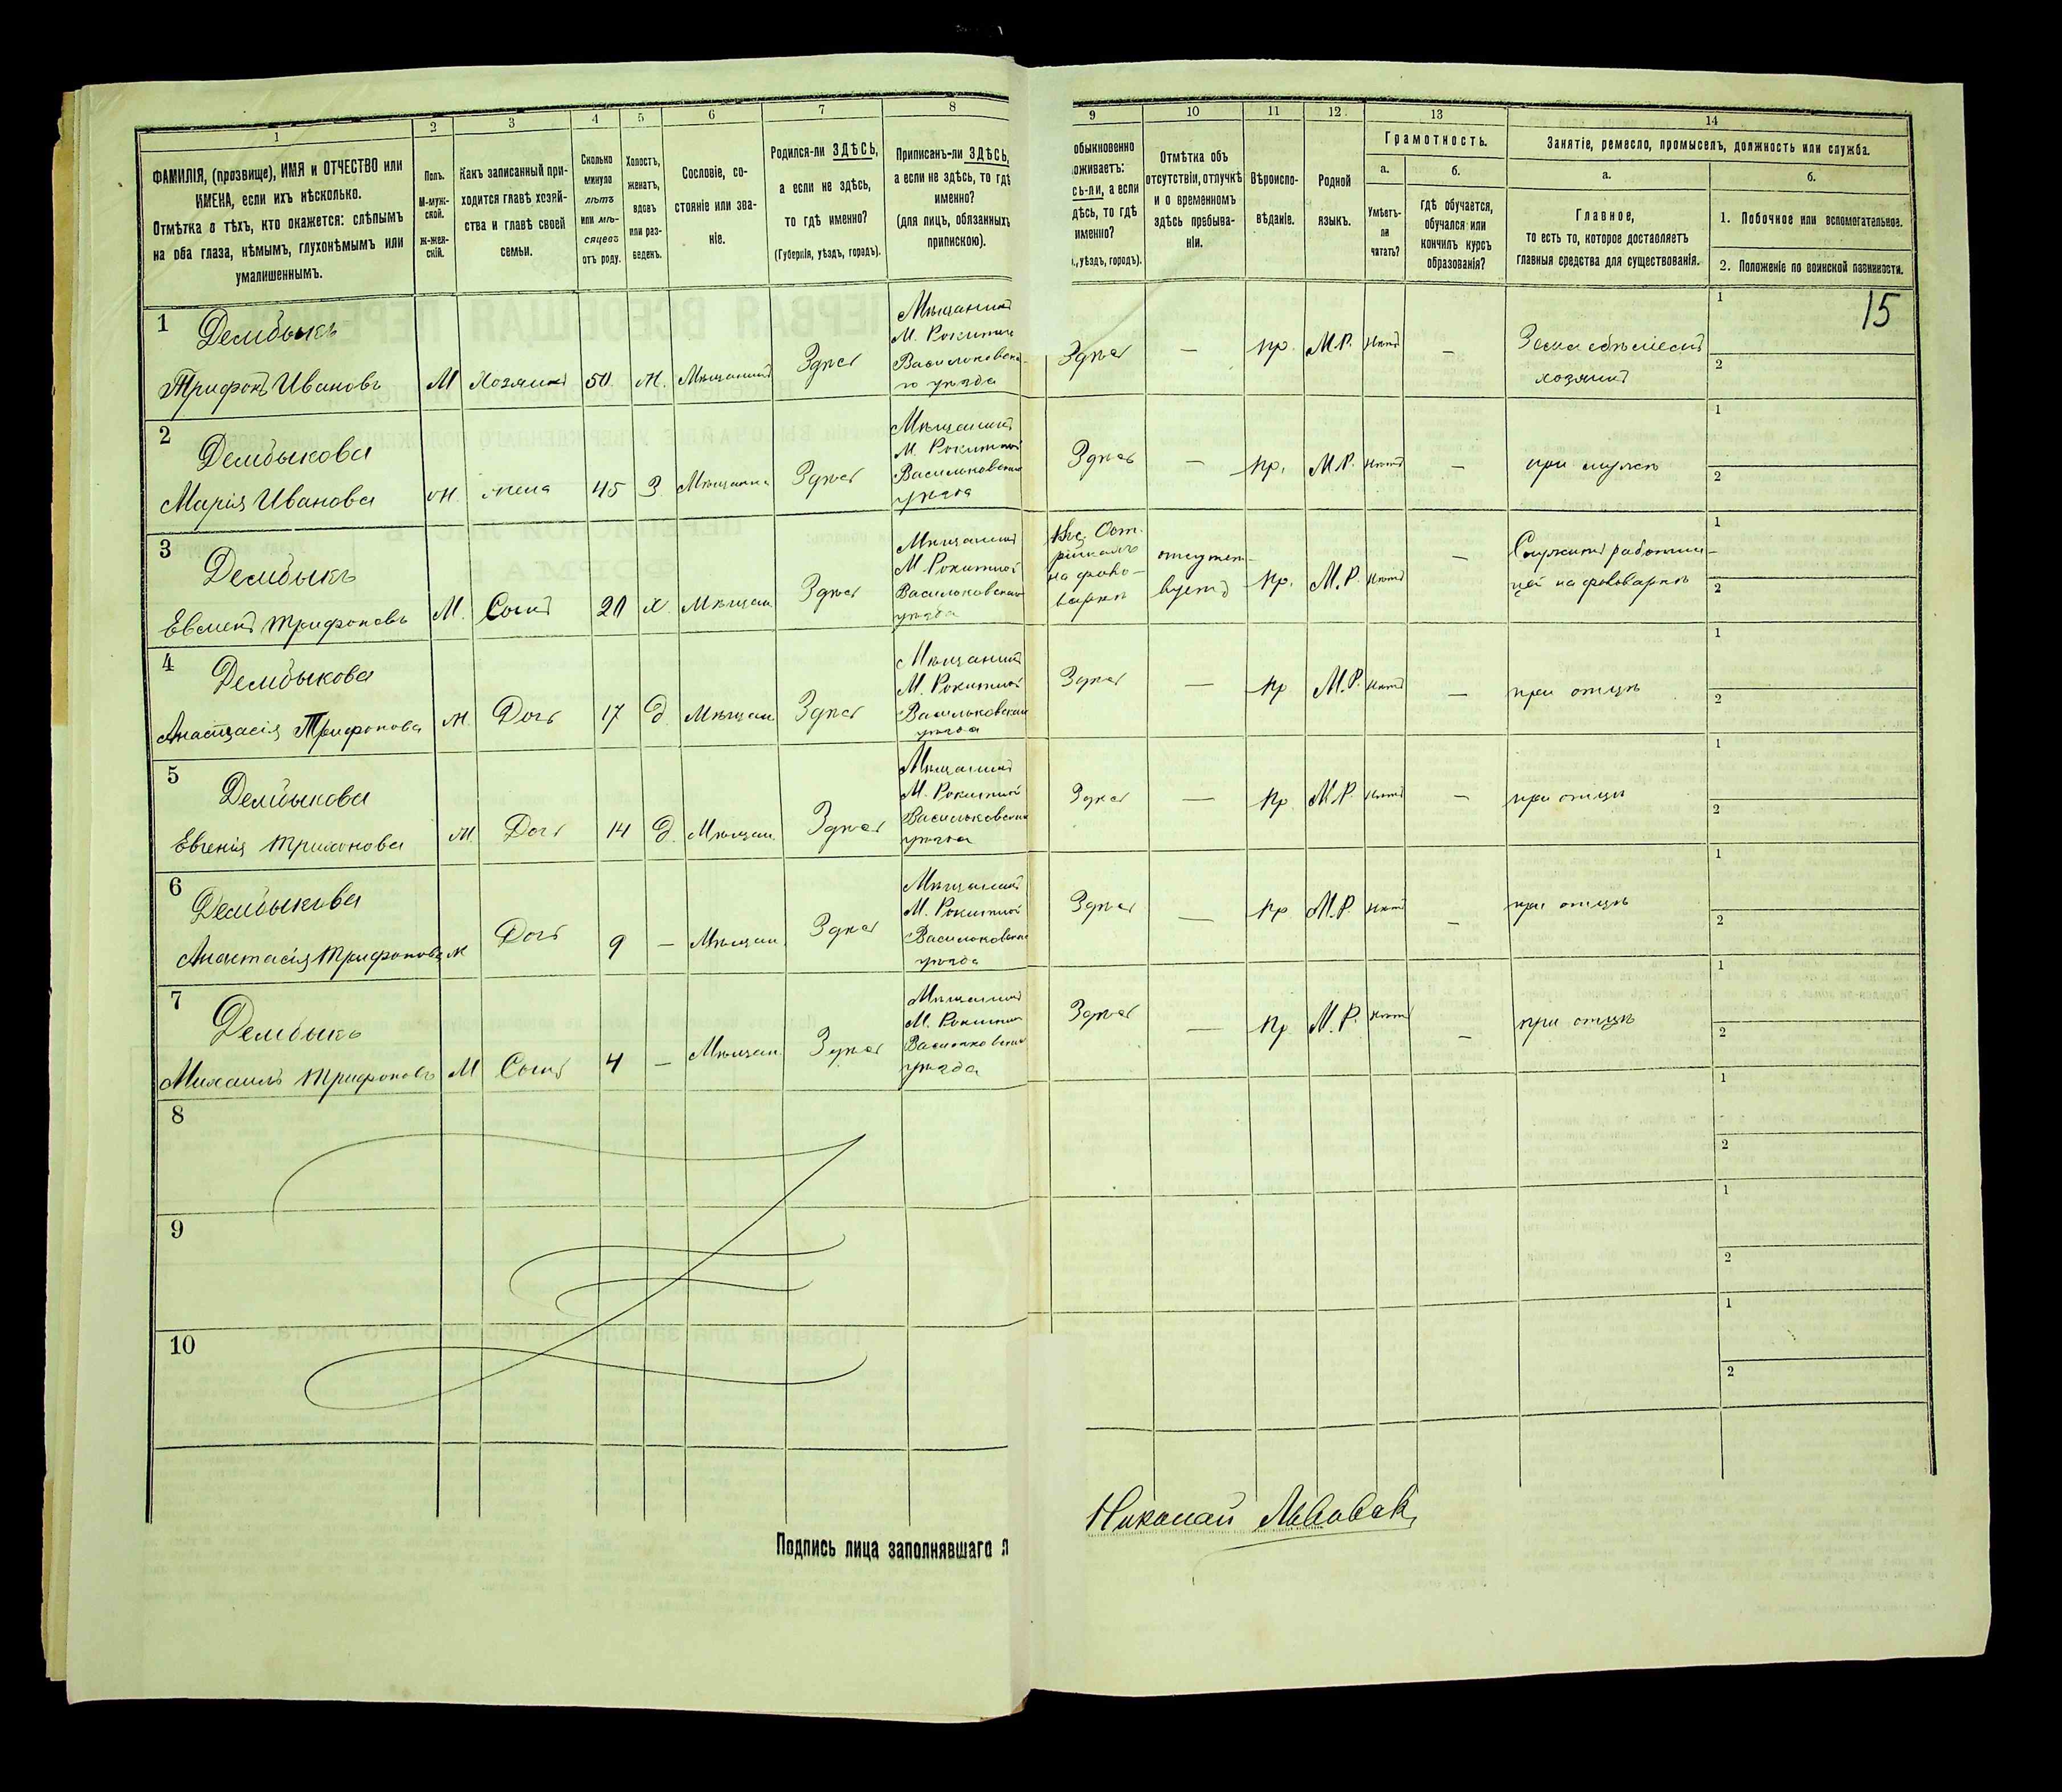 1 2 3 4 5 6 7 8 9 10 11 12 13 14
ФАМИЛІЯ, (прозвище), ИМЯ и ОТЧЕСТВО или
ИМЕНА, если ихъ нѣсколько.
Отмѣтка о тѣхъ, кто окажется: слѣпымъ
на оба глаза, нѣмымъ, глухонѣмымъ или
умалишеннымъ.
Полъ.
М-муж-
ской.
Ж-жен-
скій.
Какъ записанный при-
ходится главѣ хозяй-
ства и главѣ своей
семьи.
Сколько
минуло
лѣтъ
или мѣ-
сяцевъ
отъ роду.
Холостъ,
женатъ,
вдовъ
или раз-
веденъ.
Сословіе, со-
стояніе или зва-
ніе.
Родился-ли ЗДѢСЬ,
а если не здѣсь,
то гдѣ именно?
(Губернія, уѣздъ, городъ).
Приписанъ-ли ЗДѢСЬ,
а если не здѣсь, то гдѣ
именно?
(для лицъ, обязанныхъ
припискою).
обыкновенно
оживаетъ:
сь-ли, а если
дѣсь, то гдѣ
именно?
., уѣздъ, городъ).
Отмѣтка объ
отсутствіи, отлучкѣ
и о временномъ
здѣсь пребыва-
ніи.
Вѣроиспо-
вѣданіе.
Родной
языкъ.
Грамотность.
а.
Умѣетъ-
ли
читать?
б.
Гдѣ обучается,
обучался или
кончилъ курсъ
образованія?
Занятіе, ремесло, промыселъ, должность или служба.
а.
Главное,
то есть то, которое доставляетъ
главныя средства для существованія.
б.
1. Побочное или вспомогательное.
2. Положеніе по воинской повинности.
15
1 Дембыкъ
Трифонъ Ивановъ М Хозяинъ 50 Ж. Мѣщанинъ Здѣсь
Мѣщанинъ
М. Рокитни
Васильковска-
го уѣзда
Здѣсь — пр. М.Р. нѣтъ —
хозяинъ
1
2
2 Дембыкова
Марія Иванова Ж. жена 45 З. Мѣщанка Здѣсь
Мѣщанинъ
М. Рокитной
Васильковскаго
уѣзда
Здѣсь — пр. М.Р. нѣтъ — при мужѣ
1
2
3 Дембыкъ
Евменъ Трифоновъ М. Сынъ 20 х. Мѣщан Здѣсь
Мѣщанинъ
М. Рокитной
Васильковскаго
уѣзда
на фоль-
варкѣ
отсутст-
вуетъ
пр. М.Р. нѣтъ —
Служитъ работни-
на фольваркѣ
1
2
4 Дембыкова
Анастасія Трифонова Ж. Дочь 17 д Мѣщан Здѣсь
Мѣщанинъ
М. Рокитной
Васильковскаго
уѣзда
Здѣсь — пр М.Р. нѣтъ — при отцѣ
1
2
5 Дембыкова
Евгенія Трифонова Ж Дочь 14 д. Мѣщан Здѣсь
Мѣщанинъ
М. Рокитной
Васильковскаго
уѣзда
Здѣсь — пр М.Р. нѣтъ — при отцѣ
1
2
6 Дембыкова
Анастасія Трифонова ж Дочь 9 — Мѣщан Здѣсь
Мѣщанинъ
М. Рокитной
Васильковскаго
уѣзда
Здѣсь — пр М.Р. нѣтъ — при отцѣ
1
2
7 Дембыкъ
Михаилъ Трифоновъ М Сынъ 4 — Мѣщан Здѣсь
Мѣщанинъ
М. Рокитни
Васильковскаго
уѣзда
Здѣсь — пр М.Р. нѣтъ — при отцѣ
1
2
8
1
2
9
1
2
10
1
2
Подпись лица заполнявшаго л
Николай